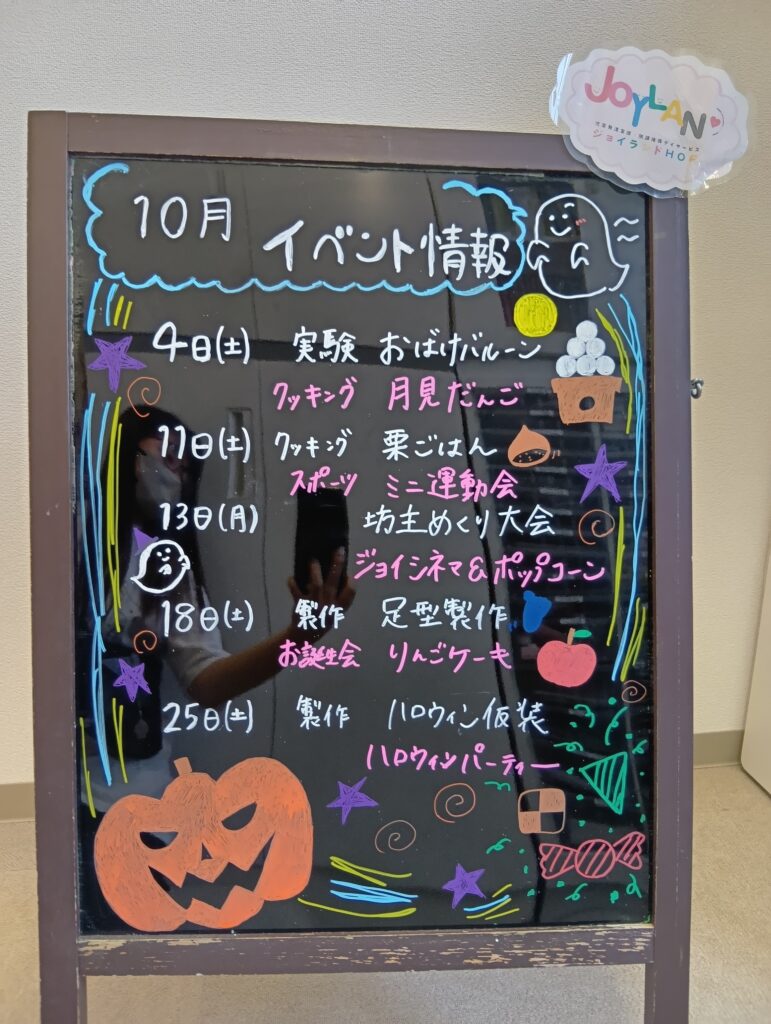 JOYLAN
児童発達支援 放課後等デイサービス
ジョイランドHOP
10月 イベント情報
4日(土) 実験 おばけバルーン
クッキング 月見だんご
11日(土) クッキング 栗ごはん
スポーツ ミニ運動会
13日(月) 坊主めくり大会
ジョイシネマ&ポップコーン
18日(土) 製作 足型製作
お誕生会 りんごケーキ
25日(土) 製作 ハロウィン仮装
ハロウィンパーティー